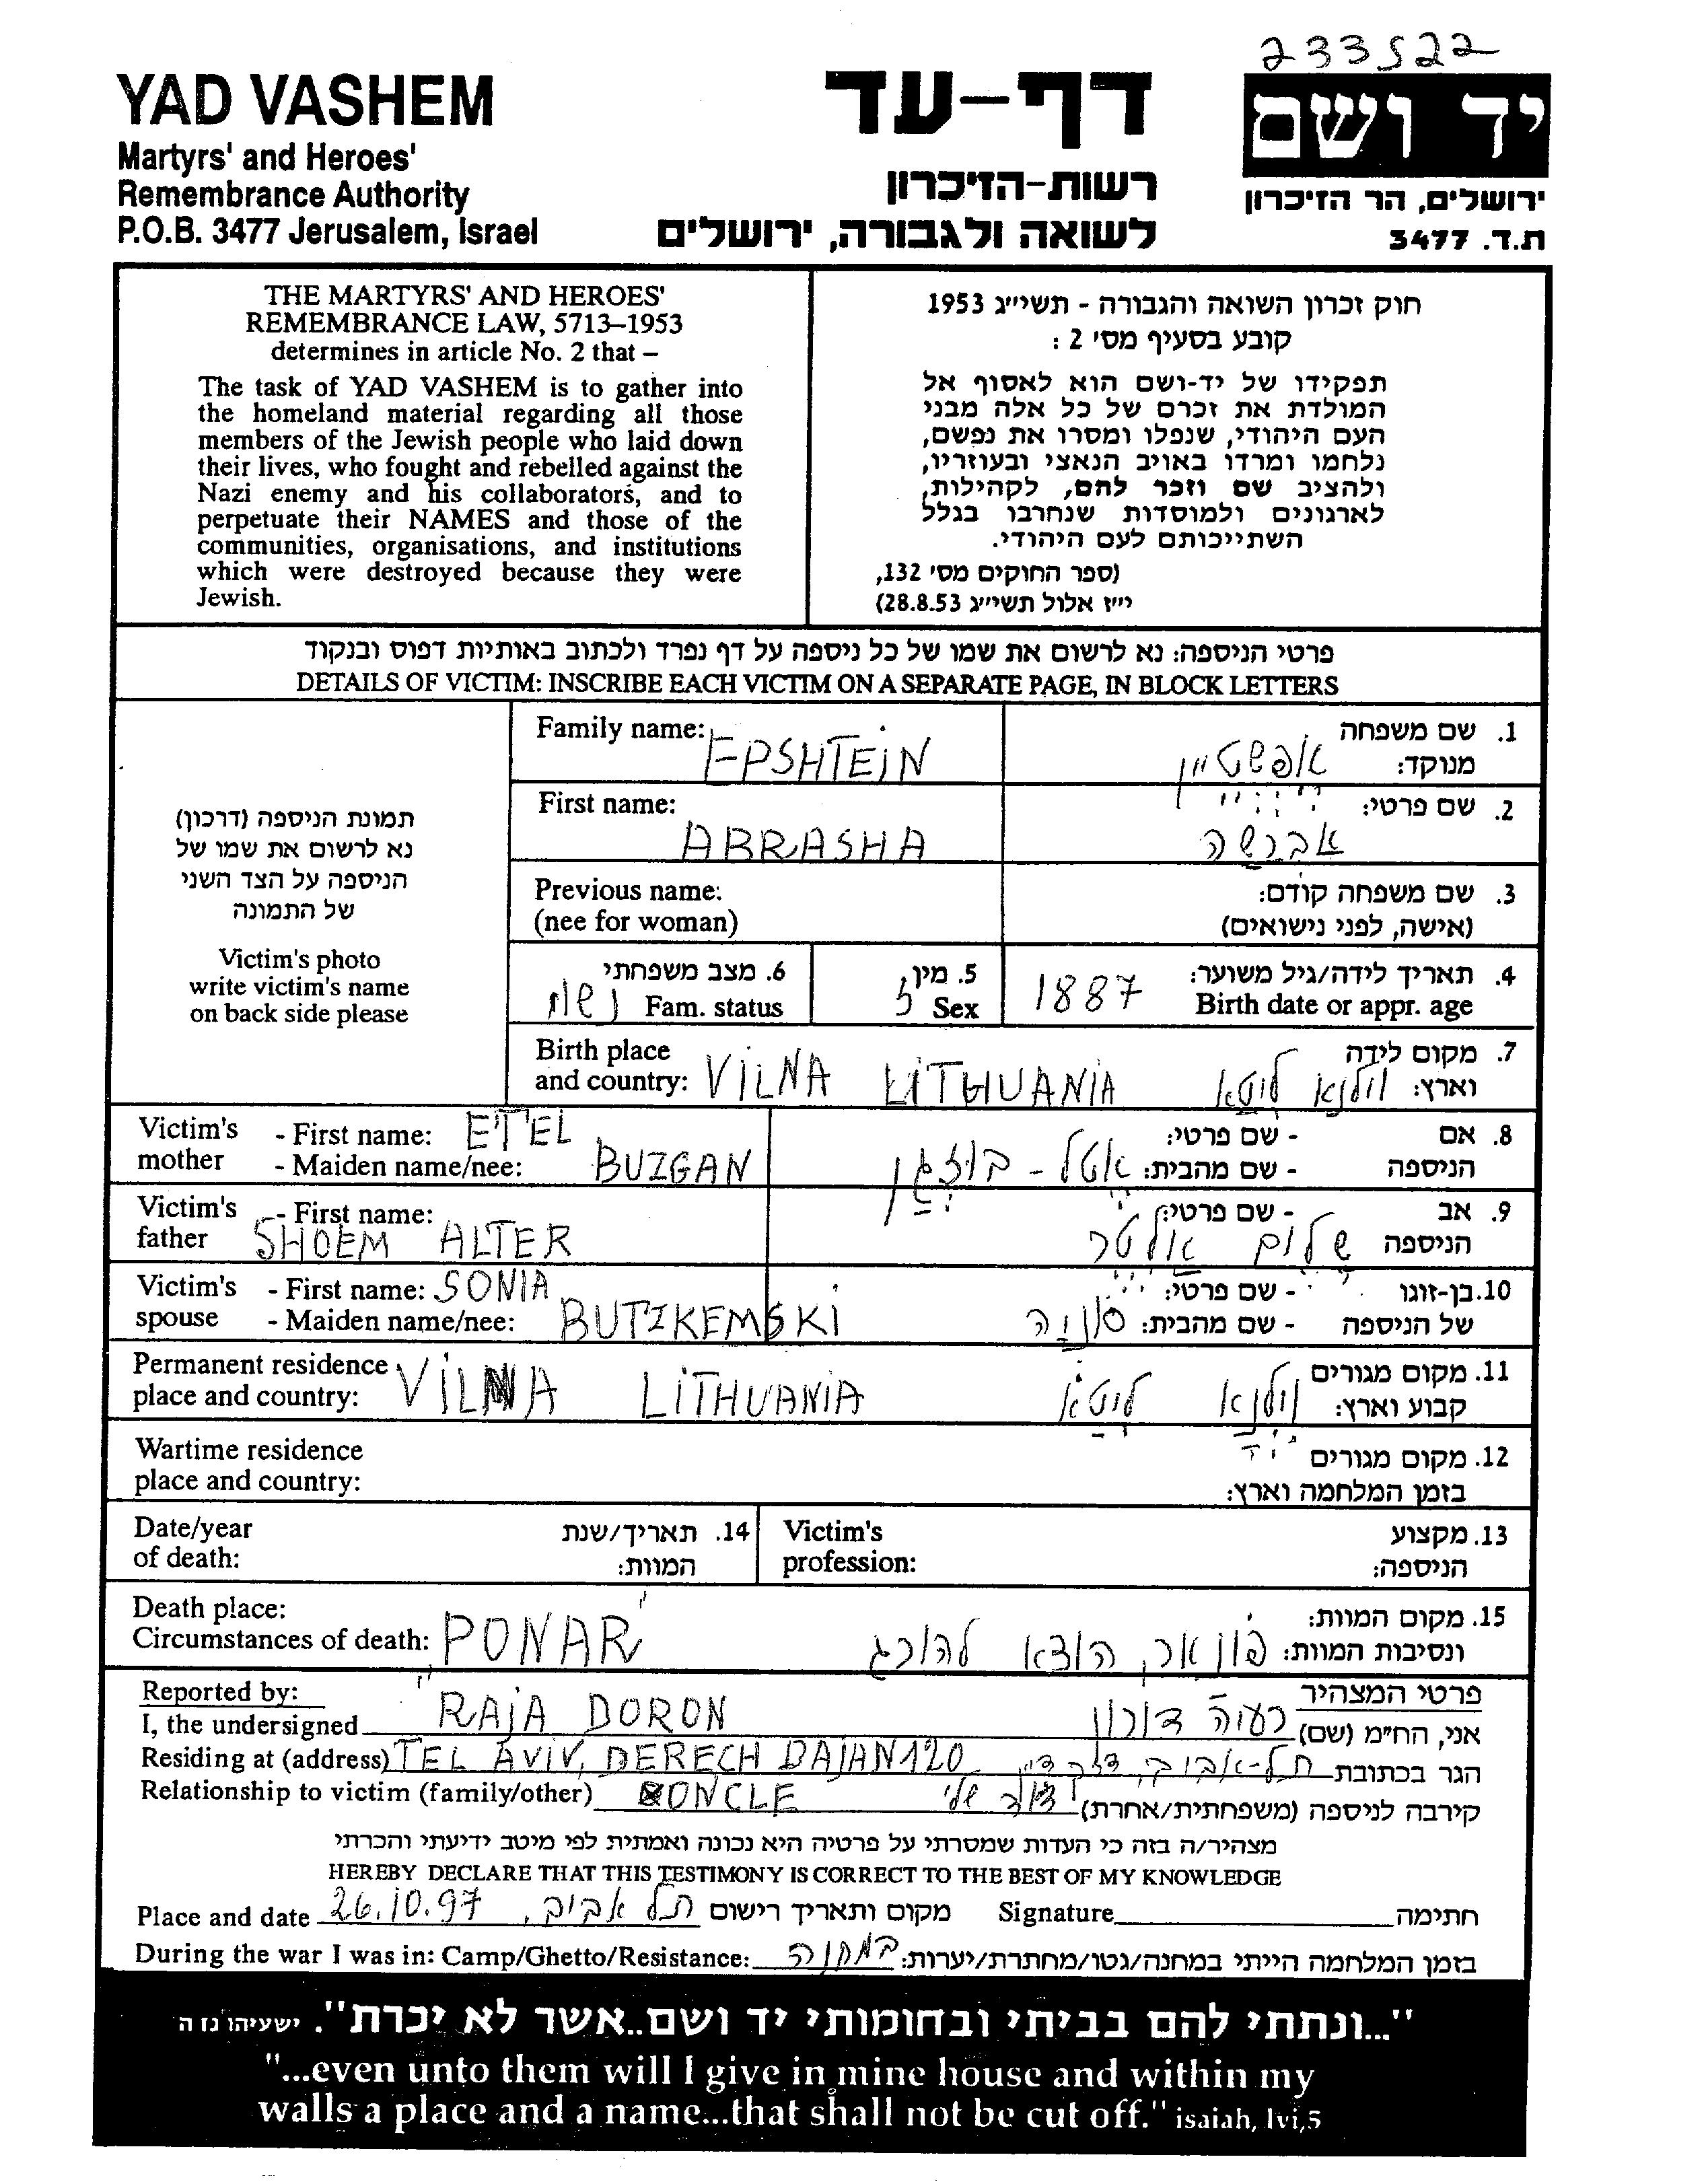 233522
YAD VASHEM
Martyrs' and Heroes'
Remembrance Authority
P.O.B. 3477 Jerusalem, Israel
דף-עד
רשות-הזיכרון
לשואה ולגבורה, ירושלים
יד ושם
ירושלים, הר הזיכרון
ת.ד. 3477
THE MARTYRS' AND HEROES'
REMEMBRANCE LAW, 5713–1953
determines in article No. 2 that –
The task of YAD VASHEM is to gather into
the homeland material regarding all those
members of the Jewish people who laid down
their lives, who fought and rebelled against the
Nazi enemy and his collaborators, and to
perpetuate their NAMES and those of the
communities, organisations, and institutions
which were destroyed because they were
Jewish.
חוק זכרון השואה והגבורה - תשי״ג 1953
קובע בסעיף מס׳ 2 :
תפקידו של יד-ושם הוא לאסוף אל
המולדת את זכרם של כל אלה מבני
העם היהודי, שנפלו ומסרו את נפשם,
נלחמו ומרדו באויב הנאצי ובעוזריו,
ולהציב שם וזכר להם, לקהילות,
לארגונים ולמוסדות שנחרבו בגלל
השתייכותם לעם היהודי.
(ספר החוקים מס׳ 132,
י״ז אלול תשי״ג 28.8.53)
פרטי הניספה: נא לרשום את שמו של כל ניספה על דף נפרד ולכתוב באותיות דפוס ובנקוד
DETAILS OF VICTIM: INSCRIBE EACH VICTIM ON A SEPARATE PAGE, IN BLOCK LETTERS
תמונת הניספה (דרכון)
נא לרשום את שמו של
הניספה על הצד השני
של התמונה
Victim's photo
write victim's name
on back side please
Family name: EPSHTEIN
1. שם משפחה
מנוקד: אפשטיין
First name: ABRASHA
2. שם פרטי: אברשה
Previous name:
(nee for woman)
3. שם משפחה קודם:
(אישה, לפני נישואים)
6. מצב משפחתי
Fam. status נשוי
5. מין
Sex ז
4. תאריך לידה/גיל משוער:
Birth date or appr. age 1887
Birth place
and country: VILNA LITHUANIA
7. מקום לידה
וארץ: וילנא ליטא
Victim's mother
- First name: ETEL
- Maiden name/nee: BUZGAN
8. אם הניספה
- שם פרטי:
- שם מהבית: אטל - בוזגן
Victim's father
- First name:
SHOEM ALTER
9. אב הניספה
- שם פרטי:
שלום אלטר
Victim's spouse
- First name: SONIA
- Maiden name/nee: BUTZKEMSKI
10. בן-זוגו של הניספה
- שם פרטי:
- שם מהבית: סוניה
Permanent residence
place and country: VILNA LITHUANIA
11. מקום מגורים
קבוע וארץ: וילנא ליטא
Wartime residence
place and country:
12. מקום מגורים
בזמן המלחמה וארץ:
Date/year
of death:
14. תאריך/שנת
המוות:
Victim's
profession:
13. מקצוע
הניספה:
Death place:
Circumstances of death: PONAR
15. מקום המוות:
ונסיבות המוות: פונאר, הוצא להורג
Reported by:
פרטי המצהיר
I, the undersigned RAJA DORON
אני, הח״מ (שם) רעיה דורון
Residing at (address) TEL AVIV, DERECH DAJAN 120
הגר בכתובת תל-אביב, דרך
Relationship to victim (family/other) ONCLE
קירבה לניספה (משפחתית/אחרת) דוד שלי
מצהיר/ה בזה כי העדות שמסרתי על פרטיה היא נכונה ואמתית לפי מיטב ידיעתי והכרתי
HEREBY DECLARE THAT THIS TESTIMONY IS CORRECT TO THE BEST OF MY KNOWLEDGE
Place and date 26.10.97 תל אביב, מקום ותאריך רישום
Signature חתימה
During the war I was in: Camp/Ghetto/Resistance:
בזמן המלחמה הייתי במחנה/גטו/מחתרת/יערות: במחנה
"...ונתתי להם בביתי ובחומותי יד ושם..אשר לא יכרת". ישעיהו נז ה
"...even unto them will I give in mine house and within my
walls a place and a name...that shall not be cut off." isaiah, lvi,5